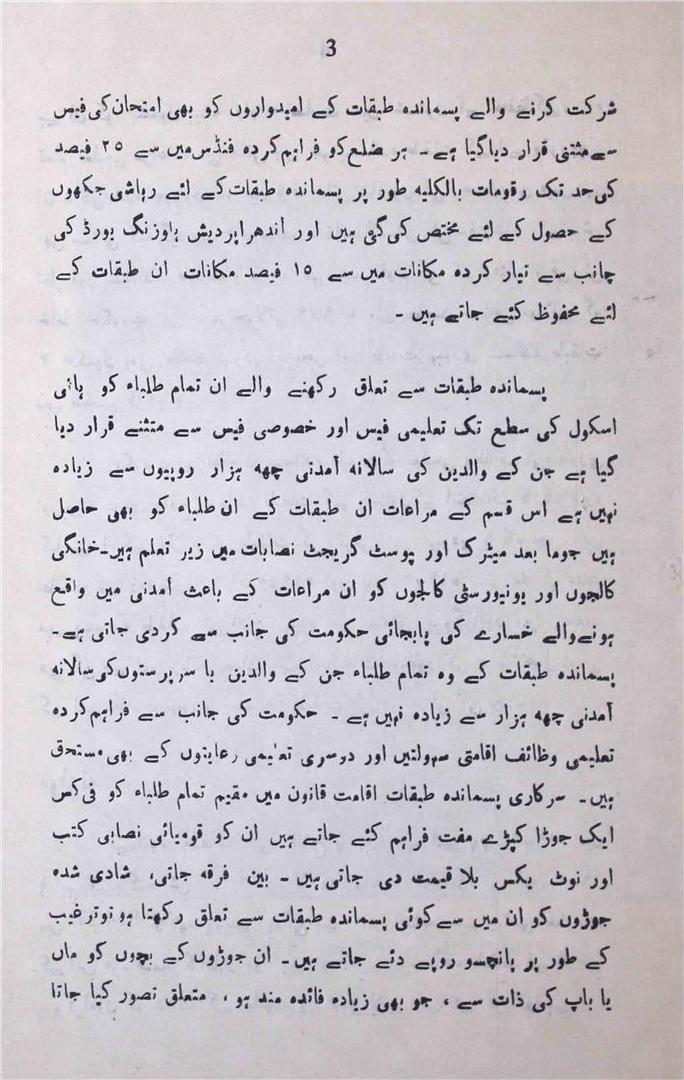 3
شرکت کرنے والے پسماندہ طبقات کے امیدواروں کو بھی امتحان کی فیس
سے مثتنیٰ قرار دیا گیا ہے ۔ ہر ضلع کو فراہم کردہ فنڈس میں سے ۲۵ فیصد
کی حد تک رقومات بالکلیہ طور پر پسماندہ طبقات کے لئے رہاشی جکھوں
کے حصول کے لئے مختص کی گئی ہیں اور آندھراپردیش ہاوزنگ بورڈ کی
جانب سے تیار کردہ مکانات میں سے ۱۵ فیصد مکانات ان طبقات کے
لئے محفوظ کئے جاتے ہیں ۔
پسماندہ طبقات سے تعلق رکھنے والے ان تمام طلباء کو ہائی
اسکول کی سطع تک تعلیمی فیس اور خصوصی فیس سے متثنے قرار دیا
گیا ہے جن کے والدین کی سالانہ آمدنی چھہ ہزار روپیوں سے زیادہ
نہیں ہے اس قسم کے مراعات ان طبقات کے ان طلباء کو بھی حاصل
ہیں جوما بعد میٹرک اور پوسٹ گریجٹ نصابات میں زیر تعلم ہیں۔خانگی
کالجوں اور یونیورسٹی کالجوں کو ان مراعات کے باعث آمدنی میں واقع
ہونے والے خسارے کی پابجائی حکومت کی جانب سے کردی جاتی ہے۔
پسماندہ طبقات کے وہ تمام طلباء جن کے والدین یا سرپرستوں کی سالانہ
آمدنی چھہ ہزار سے زیادہ نہیں ہے ۔ حکومت کی جانب سے فراہم کردہ
تعلیمی وظائف اقامتی سہولتیں اور دوسری تعلیمی رعایتوں کے بھی مستحق
ہیں۔ سرکاری پسماندہ طبقات اقامت قانون میں مقیم تمام طلباء کو فی کس
ایک جوڑا کپڑے مفت فراہم کئے جاتے ہیں ان کو قومیائی نصابی کتب
اور نوٹ یکس بلا قیمت دی جاتی ہیں ۔ بین فرقہ جاتی، شادی شدہ
جوڑوں کو ان میں سے کوئی پسماندہ طبقات سے تعلق رکھتا ہو تو ترغیب
کے طور پر پانچسو روپے دئے جاتے ہیں۔ ان جوڑوں کے بچوں کو ماں
یا باپ کی ذات سے ، جو بھی زیادہ فائدہ مند ہو ، متعلق تصور کیا جاتا